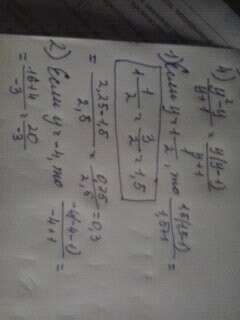 4) (y²-y)/(y+1) = y(y-1)/(y+1)
1) Если y=1 1/2, то 1,5(1,5-1)/(1,5+1) =
1 1/2 = 3/2 = 1,5
= (2,25-1,5)/2,5 = 0,75/2,5 = 0,3
2) Если y=-4, то -4(-4-1)/(-4+1) =
= (16+4)/-3 = 20/-3